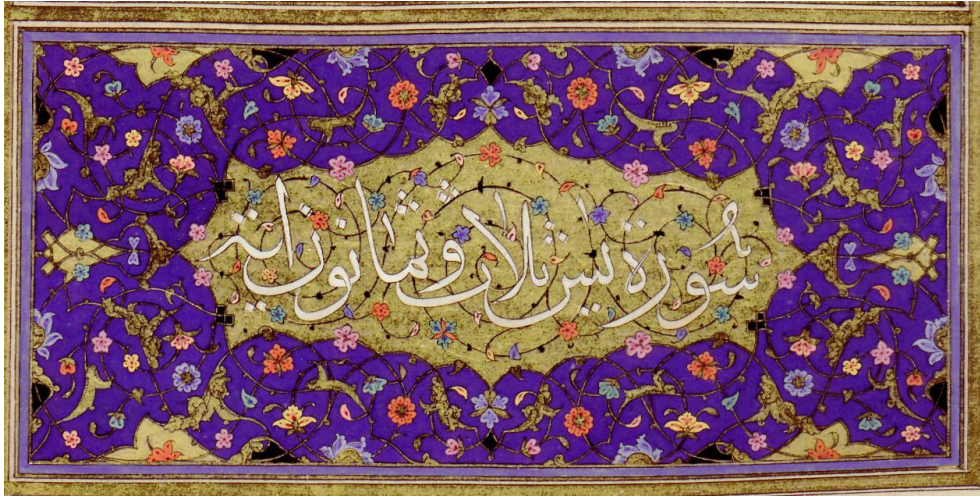 سُورة يس ثلاث وثمانون اية